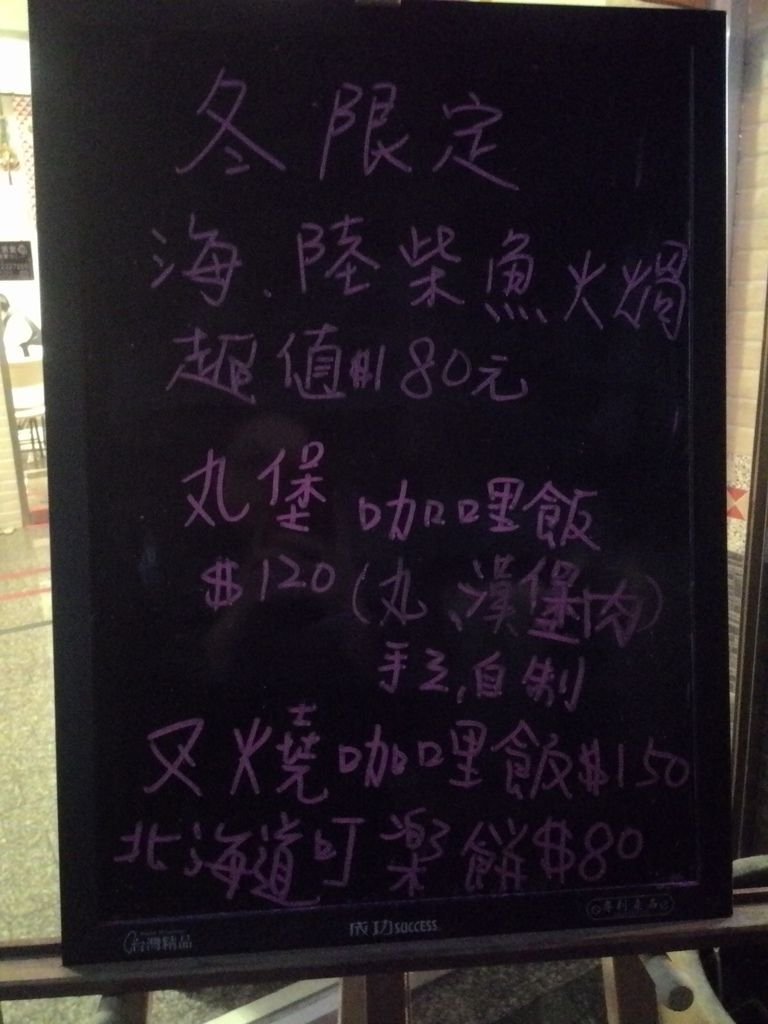 冬限定
海、陸柴魚火焗
超值$180元
丸堡 咖哩飯
$120(丸、漢堡肉)
手工,自制
叉燒咖哩飯$150
北海道可樂餅$80
台灣精品
成功 SUCCESS
專利產品